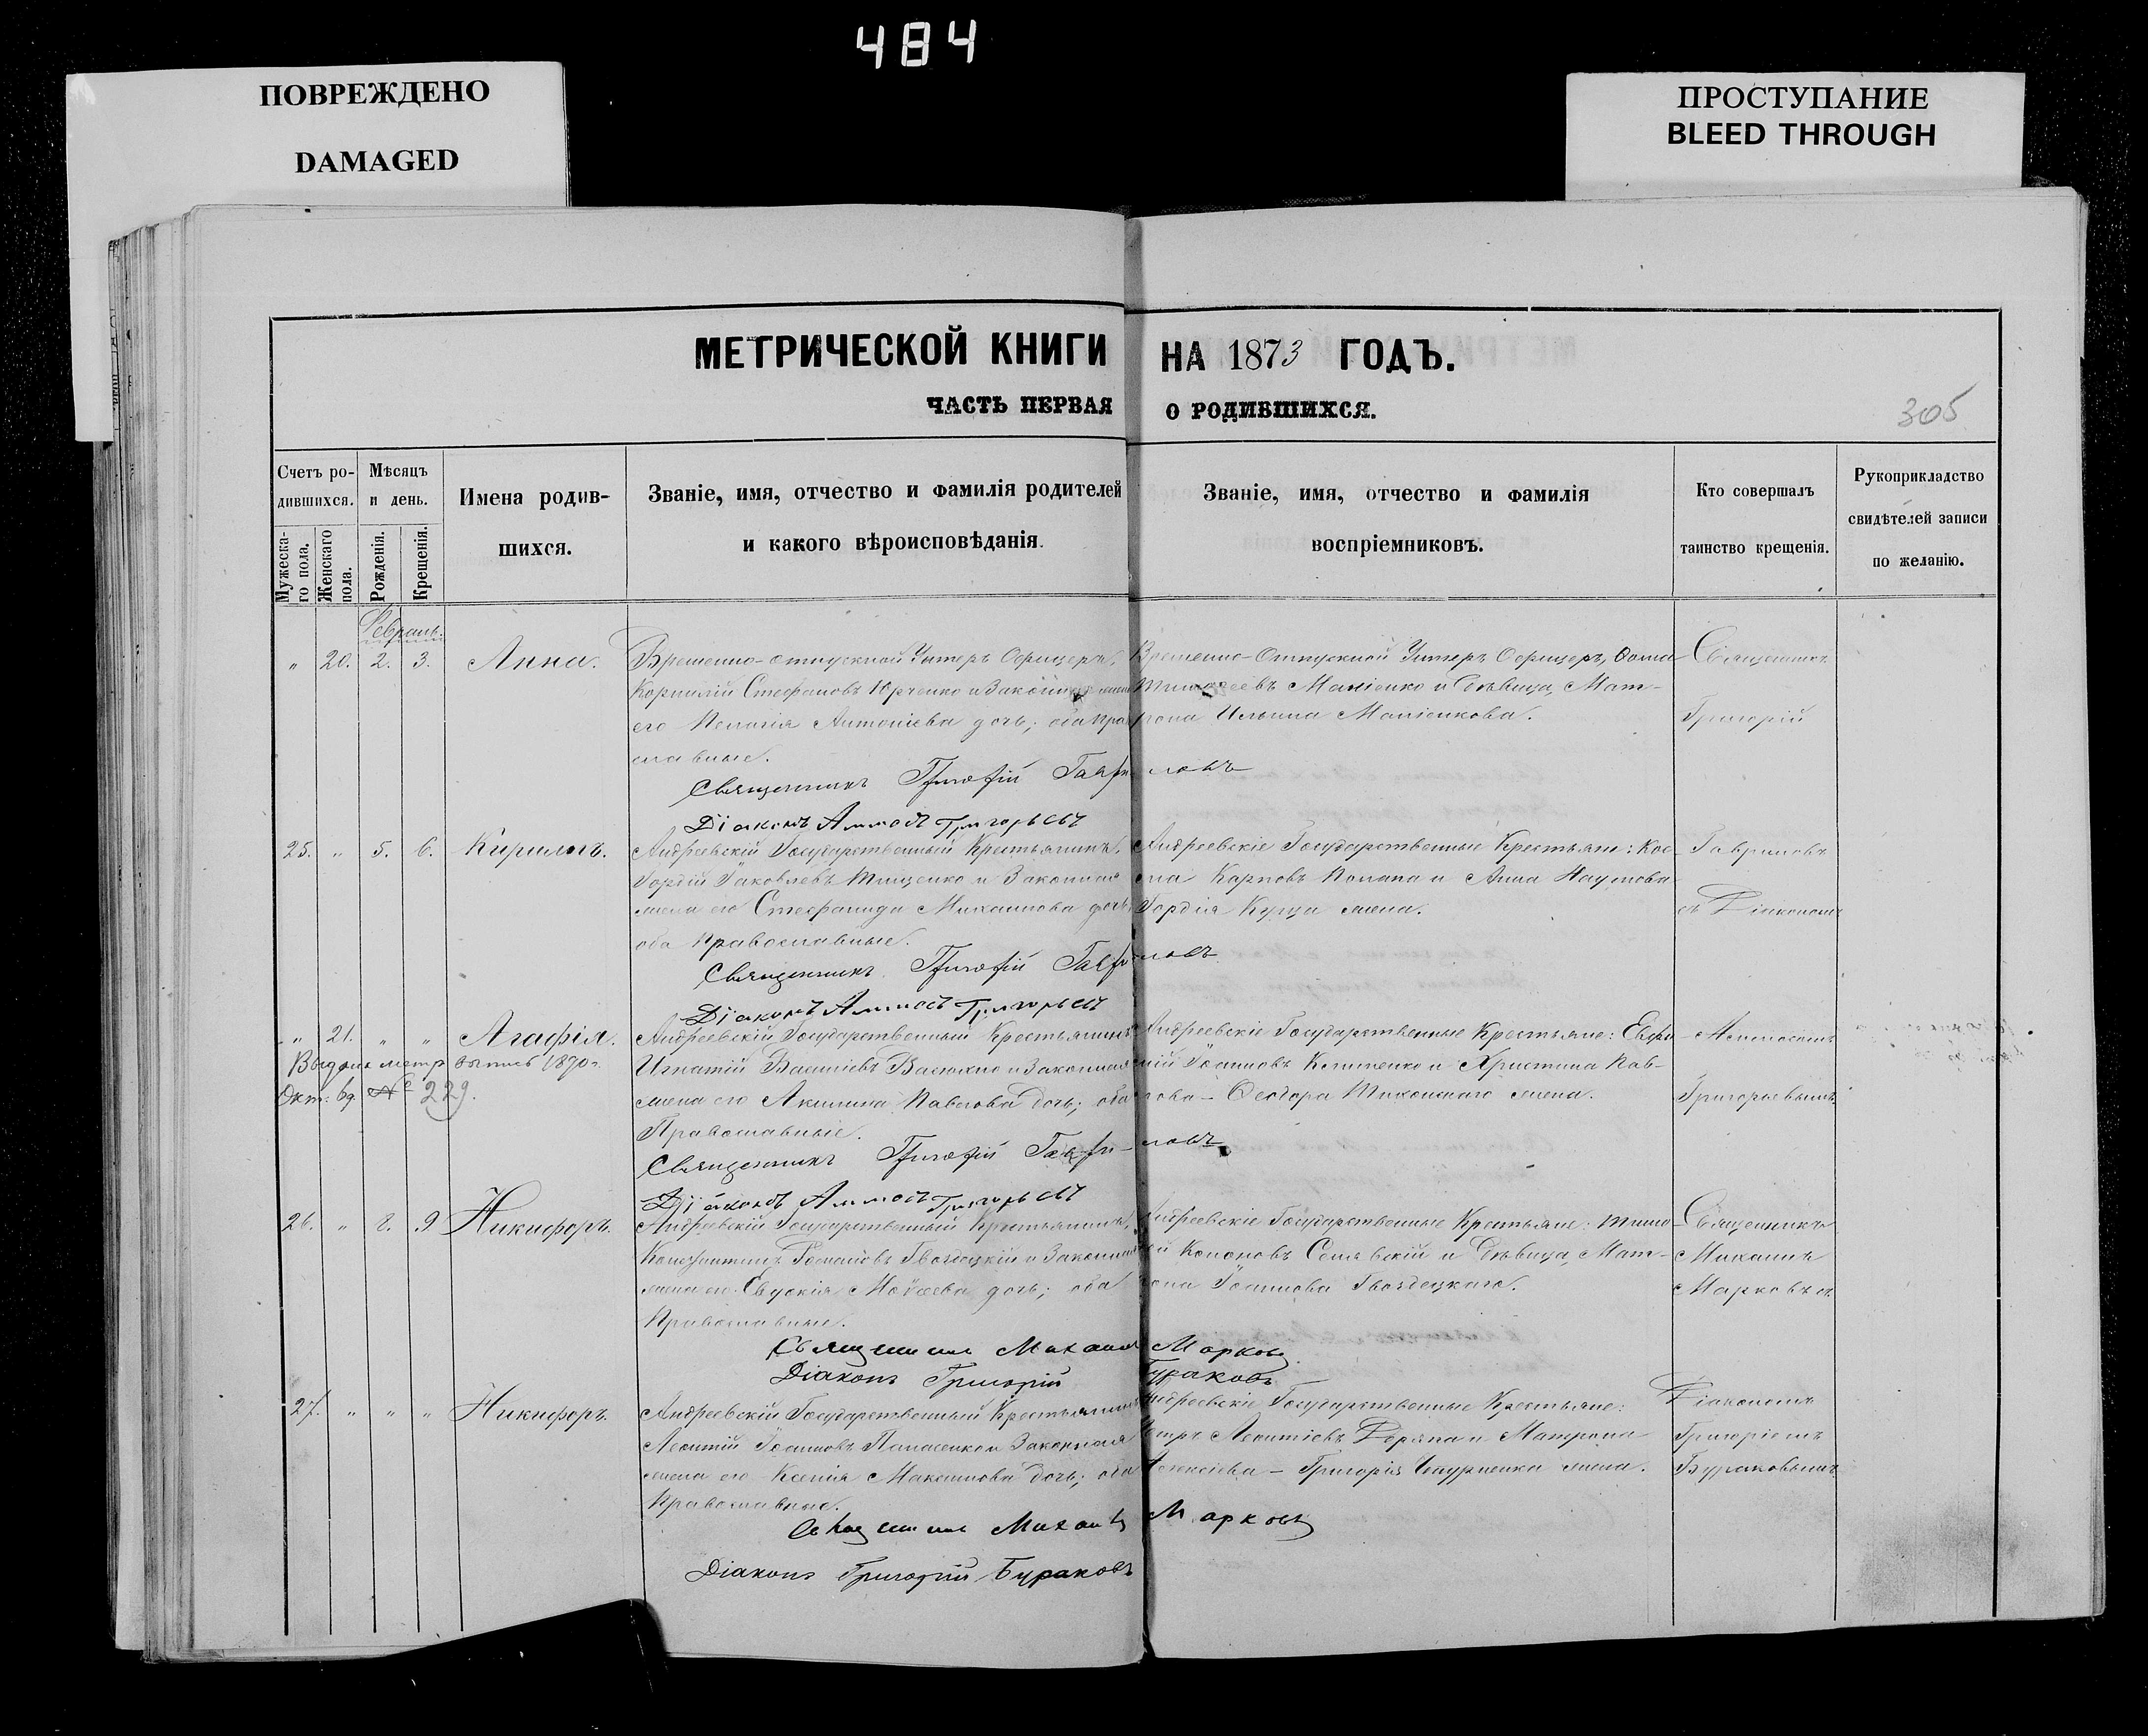 484
ПОВРЕЖДЕНО
DAMAGED
ПРОСТУПАНИЕ
BLEED THROUGH
МЕТРИЧЕСКОЙ КНИГИ НА 1873 ГОДЪ.
ЧАСТЬ ПЕРВАЯ О РОДИВШИХСЯ.
305
Счетъ ро-
дившихся.
Мужеска-
го пола.
Женскаго
пола.
Мѣсяцъ
и день.
Рожденія.
Крещенія.
Имена родив-
шихся.
Званіе, имя, отчество и фамилія родителей
и какого вѣроисповѣданія.
Званіе, имя, отчество и фамилія
воспріемниковъ.
Кто совершалъ
таинство крещенія.
Рукоприкладство
свидѣтелей записи
по желанію.
Февраль.
" 20. 2. 3. Анна.
Временно-отпускной Унтеръ Офицеръ,
Корнилій Стефановъ Юрченко и Законная жена
его Пелагія Антоніева дочь; оба Пра
славные.
Временно-Отпускной Унтеръ Офицеръ, Фома
Тимофеевъ и Дѣвица, Мат-
рона Ильина
Священникъ
Григорій
Священникъ Григорій Гавриловъ
Діаконъ Григорьевъ
25. " 5. 6. Кириллъ.
Андреевскій Государственный Крестьянинъ,
Гордій Яковлевъ Тищенко и Законная
жена его Стефанида Михаилова дочь;
оба Православные.
Андреевскіе Государственные Крестьяне: Кос-
ма Карповъ и Анна Наумова
Гордія Куща жена.
Гавриловъ
съ Діакономъ
Священникъ Григорій Гавриловъ
Діаконъ Григорьевъ
" 21. " " Агафія.
Выдана метр. выпись 1890 г.
Окт. № 229.
Андреевскій Государственный Крестьянинъ
Игнатій Василіевъ и Законная
жена его Акилина Павлова дочь; оба
Православные.
Андреевскіе Государственные Крестьяне: Евфи
мій Іоанновъ и Христина Пав-
лова - Феодора жена.
Григорьевымъ.
Священникъ Григорій Гавриловъ
Діаконъ Григорьевъ
26. " 8. 9 Никифоръ.
Андреевскій Государственный Крестьянинъ,
Константинъ Романовъ Гвоздецкій и Законная
жена его Евдокія Моѵсеева дочь; оба
Православные.
Андреевскіе Государственные Крестьяне: Тимо
фей Кононовъ и Дѣвица, Мат-
рона Іоаннова Гвоздецкаго.
Священникъ
Михаилъ
Марковъ съ
Священникъ Михаилъ Марковъ
Діаконъ Григорій Бураковъ
27. " " " Никифоръ.
Андреевскій Государственный Крестьянинъ
Леонтій Іоанновъ и Законная
жена его Ксенія Максимова дочь; оба
Православные.
Андреевскіе Государственные Крестьяне:
Петръ Леонтіевъ и Матрона
Алексіева - Григорія жена.
Діакономъ
Григоріемъ
Бураковымъ
Священникъ Михаилъ Марковъ
Діаконъ Григорій Бураковъ